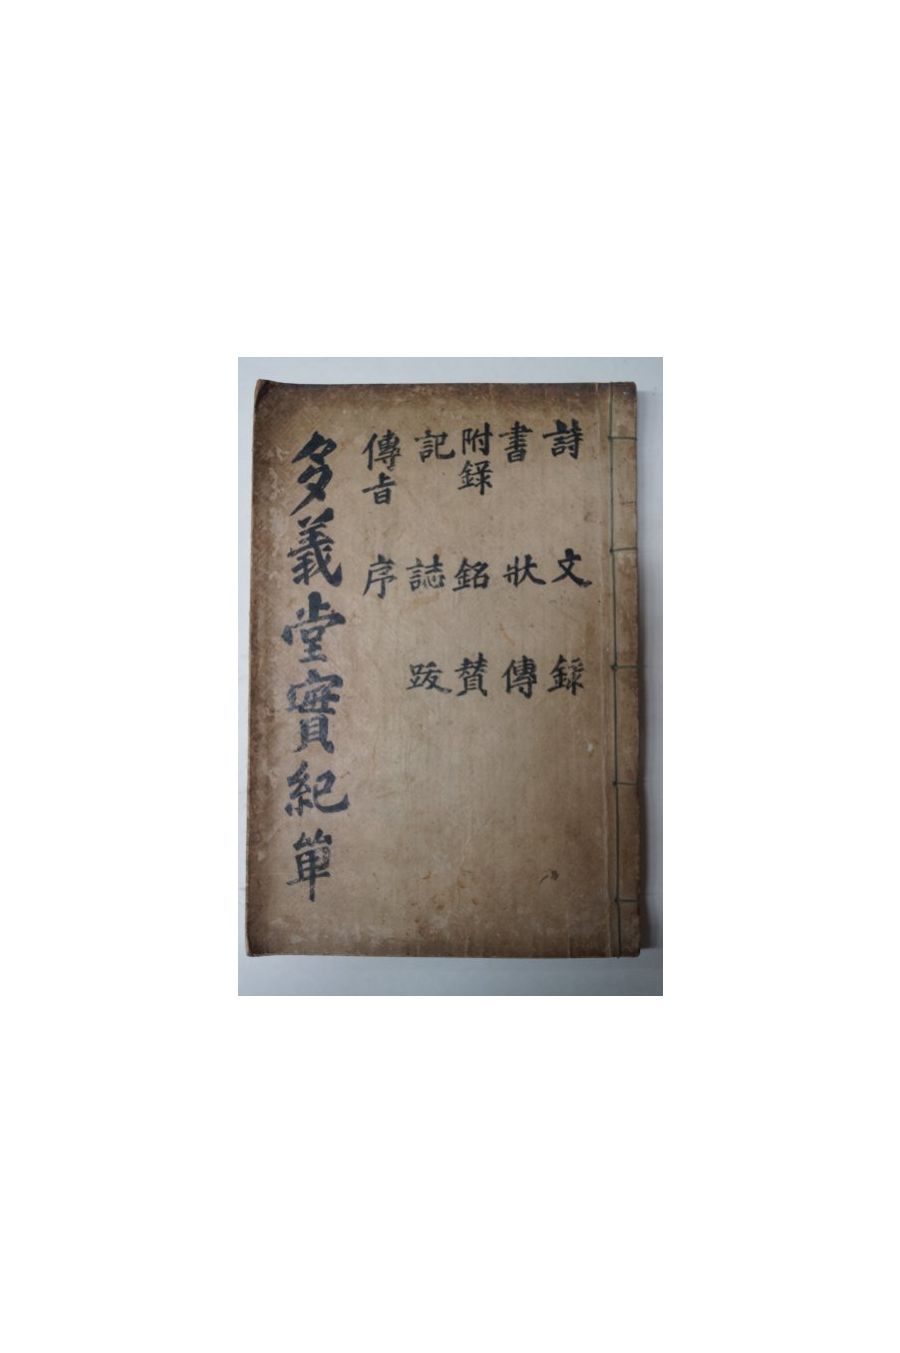 詩 文 錄
書 狀 傳
附錄 銘 贊
記 誌 跋
傳旨 序
多義堂實紀單